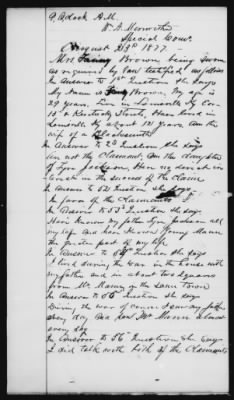 P. Adcock A.M.
W. A.
Special Com.
August 23rd 1877.
Mrs Fanny Brown being sworn
as required by law testified as follows
In Answer to 1st Question she says
My Name is Brown. My age is
29 years, live in Louisville Ky Cor.
15 & Kentucky Streets, Have lived in
Louisville Ky about 12 years Am the
wife of a Blacksmith
In Answer to 2d Question she says
Am not the Claimant. Am the daughter
of Tyra Jackson. Have no direct in-
terest in the success of the Claim
In Answer to 52 Question she says
In favor of the Claimants
In Answer to 53d Question she says
Have Known my father Tyra Jackson all
my life and have Known Young Mann
the greater part of my life
In Answer to 54th Question she says
I lived during the war in the house with
my father and in about two squares
from Mr. Mann, in the same town
In Answer to 55 Question she says
During the war of course I saw my father
every day and saw Mr Mann almost
every day
In Answer to 56th Question She says
I did talk with both of the Claimants